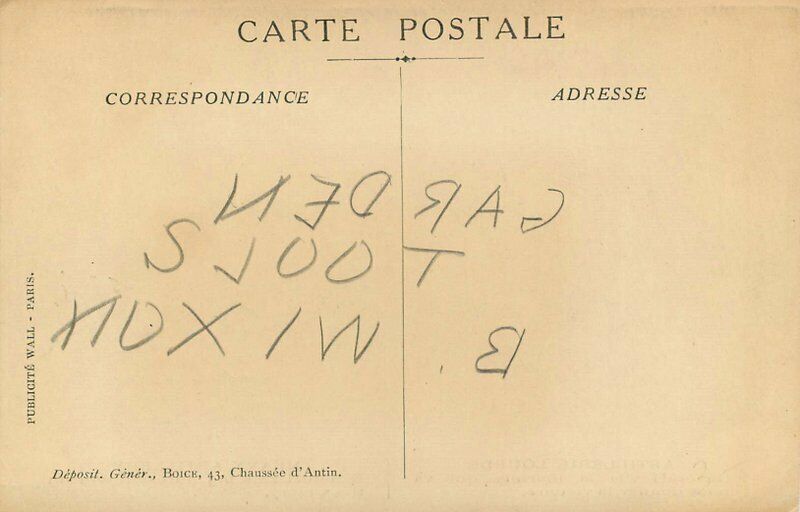 CARTE POSTALE
CORRESPONDANCE
ADRESSE
GARDEN
TOOLS
B. MIXON
PUBLICITÉ WALL - PARIS.
Déposit. Génér., BOICE, 43, Chaussée d'Antin.